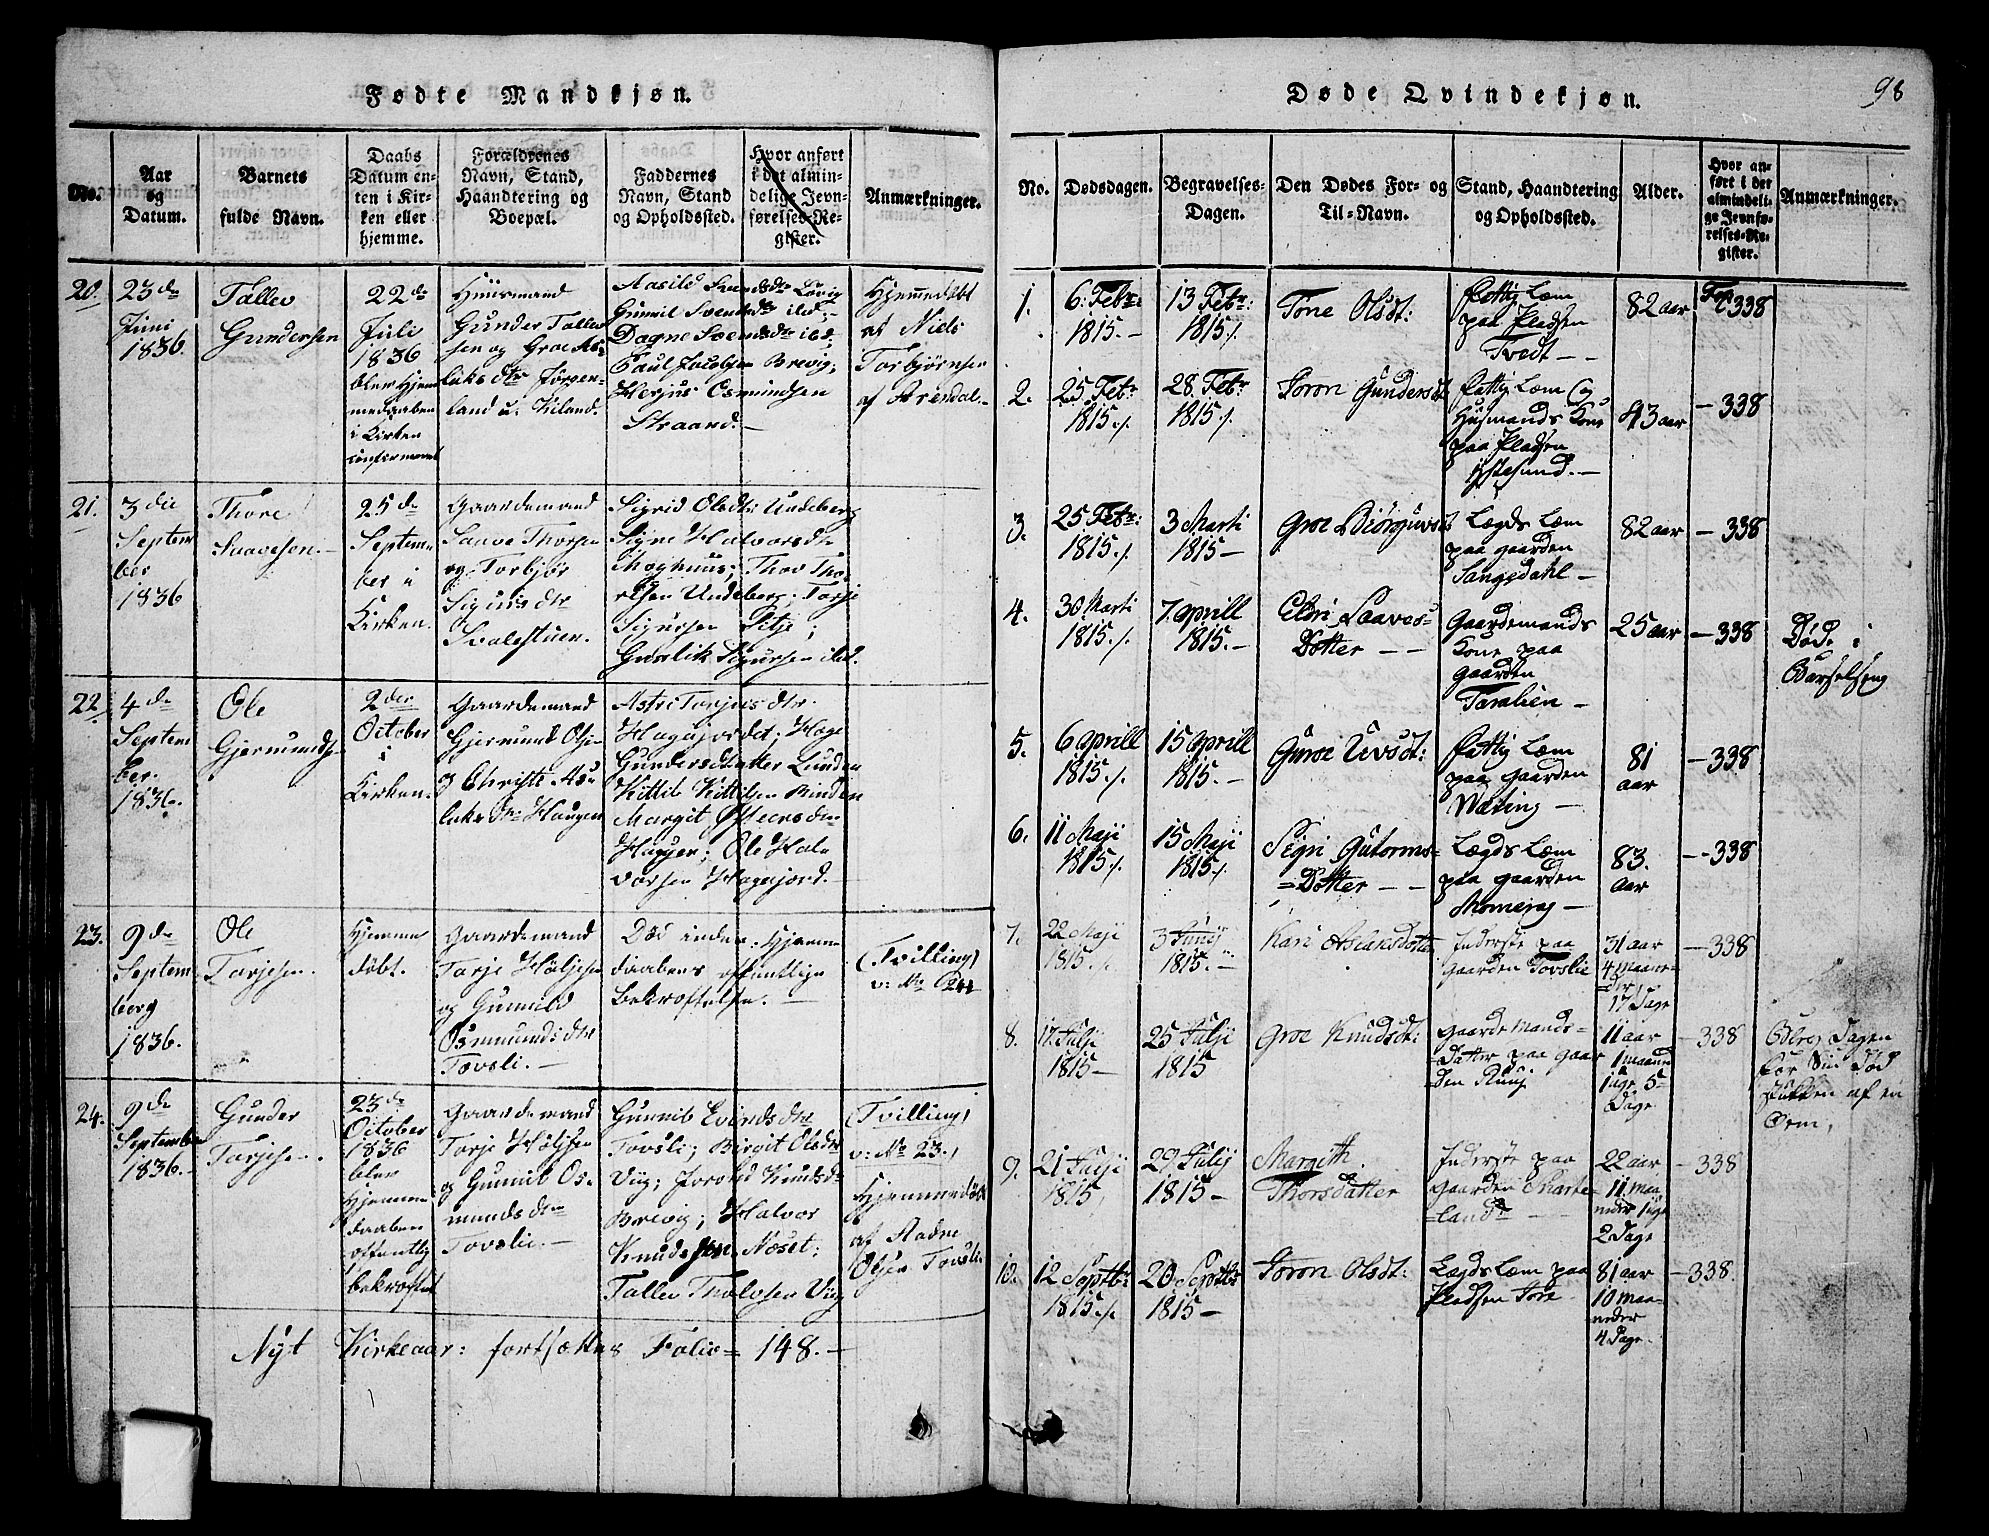 Fødte Mandkjøn.
No.
Aar
og
Datum.
Barnets
fulde Navn.
Daabs
Datum en-
ten i Kir-
ken eller
hjemme.
Forældrenes
Navn, Stand,
Haandtering og
Boepæl.
Faddernes
Navn, Stand
og Opholdssted.
Hvor anført
i det almin-
delige Jevn-
førelses-Re-
gister.
Anmærkninger.
20.
23de
Juni
1836.
Tallev
Gundersen
22de
Juli
1836
blev Hjem
medaaben
i Kirken
confirmeret
Huusmand
Gunder Tallev
sen og Groe As-
laks dtr Jørgen-
land u. Kiland.
Aasild Svends dtr Løvig
Gunnil Svends dtr ibd.
Dagne Svends dtr ibd.
Paul Jacobsen Brevig,
Herjus Osmundsen
Straand.
Hjemmedøbt
af Niels
Torbjørnsen
af Arendal.
21.
3die
Septem
ber
1836
Thore
Saavesen.
25de
Septem-
ber i
Kirken.
Gaardemand
Saave Thorsen
og Torbjør
Sigurds dtr
Svalestuen.
Sigrid Olsdtr: Undeberg
Signe Halvorsdtr
Moghuus; Thov Tho-
resen Undeberg; Torje
Sigursen Sitje;
Gunlik Sigursen ibd.
22.
4de
Septem
ber.
1836.
Ole
Gjermundsen
2den
October
i
Kirken.
Gaardemand
Gjermund Olsen
og Christi As-
laks dtr Haugen
Astri Torjus dtr.
Hagajordet; Hæge
Gunders datter Lunden
Kittil Kittilsen Rinden
Margit Østens dtr
Haugen; Ole Hal-
vorsen Hagajord.
23.
9de
Septem
berg
1836.
Ole
Torjesen.
Hjemme
døbt.
Gaardemand
Torje Høljesen
og Gunnild
Osmunds dtr
Tovsli.
Død inden Hjemme
daabens offentlige
bekræftelse.
(Tvilling)
v: No 24
24.
9de
September
1836.
Gunder
Torjesen.
23de
October
1836
blev
Hjemme
daaben
offentlig
bekræftet
Gaardemand
Torje Høljesen
og Gunnil Os-
munds dtr
Tovslie.
Gunnil Evinds dtr
Tovsli; Birgit Olsdtr
Viig; Jorand Knuds dtr
Brevig; Halvor
Knudsen Næset;
Tallev Thalvsen Viig
(Tvilling)
v: No 23.
Hjemmedøbt
af Aadne
Olsen Tovsli
Nyt Kirkeaar: fortsættes Folio = 148.
98
Døde Qvindekjøn.
No.
Dødsdagen.
Begravelses-
Dagen.
Den Dødes For- og
Til-Navn.
Stand, Haandtering
og Opholdssted.
Alder.
Hvor an-
ført i det
almindeli-
ge Jevnfø-
relses-Re-
gister.
Anmærkninger.
1.
6. Febr:
1815.
13 Febr:
1815
Tone Olsdt:
Fattig Læm
paa Pladsen
Tvedt
82 aar
Fol. 338
2.
25 Febr
1815
28 Febr
1815
Toron Gundersdt
Fattig Læm og
Husmands Kone
paa Pladsen
Ystesund.
43 aar
338
3.
25 Febr:
1815
3 Marti
1815
Groe Biørguvsdt
Lægds Læm
paa gaarden
Sangsdahl
82 aar
338
4.
30 Marti
1815
7 Aprill
1815.
Elbri Saaves-
Dotter
Gaardemands
Kone paa
Gaarden
Taralien
25 aar
338
Døde i
Barselseng
5.
6 Aprill
1815
15 Aprill
1815.
Guroe Uvsdt:
Fattig Læm
paa Gaarden
Wæting
81
aar
338
6.
11 Maji
1815
15 Maji
1815
Sigri Gutorms-
=Dotter
Lægds Læm
paa Gaarden
Momrag
83.
aar
338
7.
22 Maji
1815
3 Junij
1815.
Kari Aslaksdotter
Inderste paa
Gaarden Tovslie
31 aar
4 maane-
der
17 Dage
338
8.
17 Julji
1815
25 Julji
1815
Groe Knudsdt:
Gaarde Mands-
=Datter paa Gaar
den Ruuj
11 aar
1 maaned
1 uge 5
Dage
338
Blev Dagen
før sin Død
stukken af en
Orm,
9.
21 Julji
1815
29 Julij
1815
Margith
Thorsdatter
Inderste paa
Gaarden Marke-
=land
22 aar
11 maa-
neder 1 uge
2 Dage
338
10.
12 Septbr:
1815
20 Septbr
1815
Toron Olsdt:
Lægds Læm paa
Pladsen Tore
81 aar
10 maa-
neder
4 Dage
338.